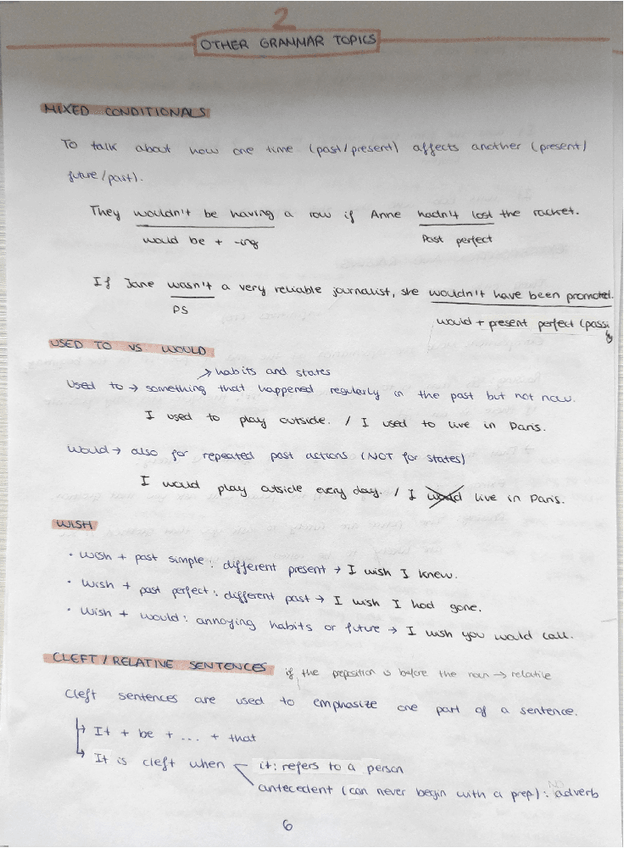 2
OTHER GRAMMAR TOPICS
MIXED CONDITIONALS
To talk about how one time (past/present) affects another (present/
future/past).
They wouldn't be having a row if Anne hadn't lost the racket.
would be + -ing Past perfect
If Jane wasn't a very reliable journalist, she wouldn't have been promoted.
PS would + present perfect (passi
USED TO VS WOULD
→ habits and states
Used to → something that happened regularly in the past but not now.
I used to play outside. / I used to live in Paris.
Would → also for repeated past actions (NOT for states)
I would play outside every day. / I would live in Paris.
WISH
· Wish + past simple: different present → I wish I knew.
· Wish + past perfect: different past → I wish I had gone.
· Wish + would: annoying habits or future → I wish you would call.
CLEFT / RELATIVE SENTENCES if the preposition is before the noun → relative
Cleft sentences are used to emphasize one part of a sentence.
→ It + be + ... + that
→ It is cleft when it: refers to a person
antecedent (can never begin with a prep): adverb
6